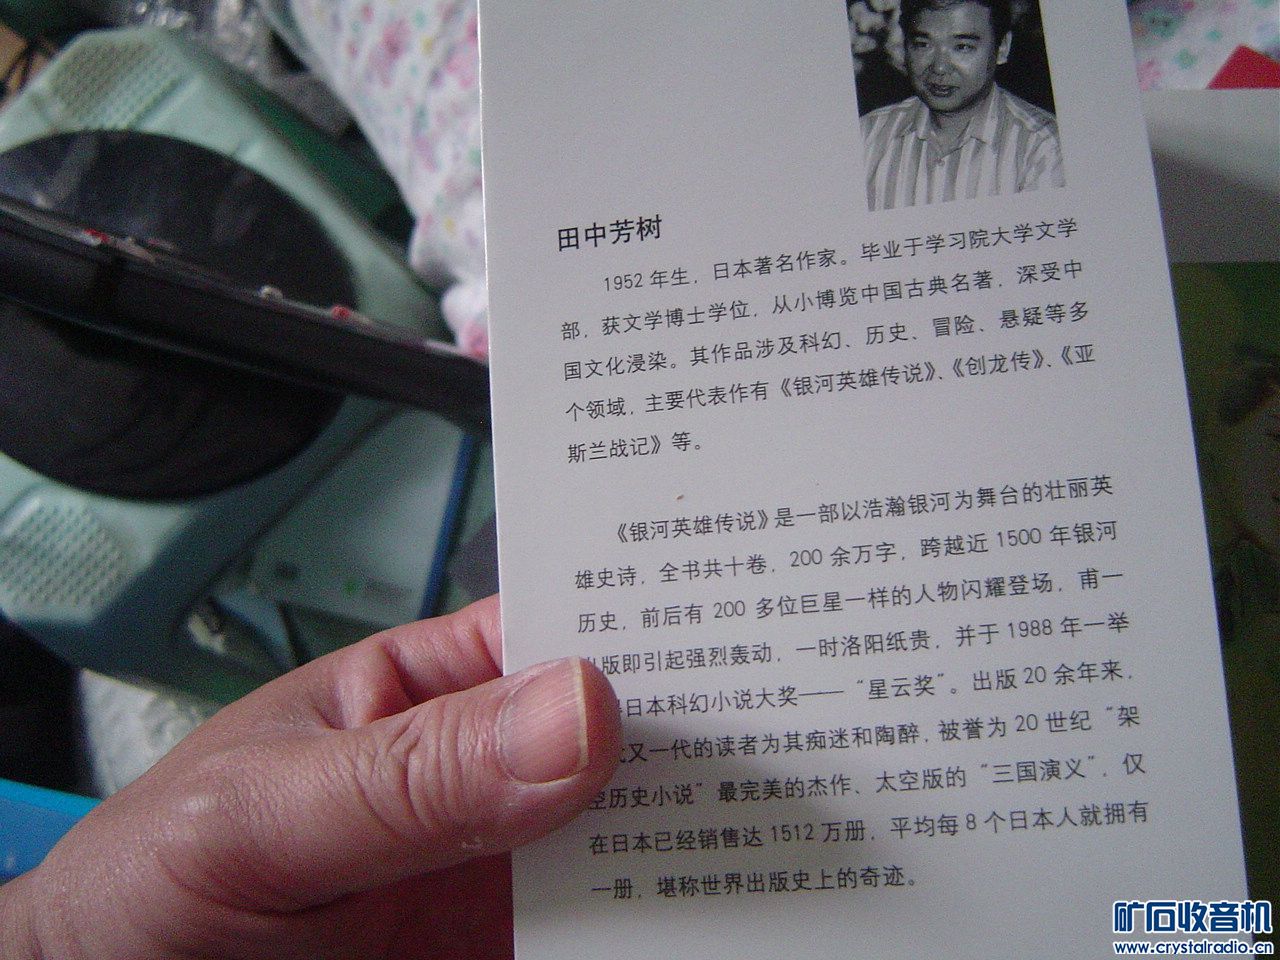 田中芳树
1952 年生，日本著名作家。毕业于学习院大学文学
部，获文学博士学位，从小博览中国古典名著，深受中
国文化浸染。其作品涉及科幻、历史、冒险、悬疑等多
个领域，主要代表作有《银河英雄传说》、《创龙传》、《亚
斯兰战记》等。
《银河英雄传说》是一部以浩瀚银河为舞台的壮丽英
雄史诗，全书共十卷，200 余万字，跨越近 1500 年银河
历史，前后有 200 多位巨星一样的人物闪耀登场，甫一
出版即引起强烈轰动，一时洛阳纸贵，并于 1988 年一举
日本科幻小说大奖——“星云奖”。出版 20 余年来，
又一代的读者为其痴迷和陶醉，被誉为 20 世纪“架
空历史小说”最完美的杰作、太空版的“三国演义”，仅
在日本已经销售达 1512 万册，平均每 8 个日本人就拥有
一册，堪称世界出版史上的奇迹。
矿石收音机
www.crystalradio.cn